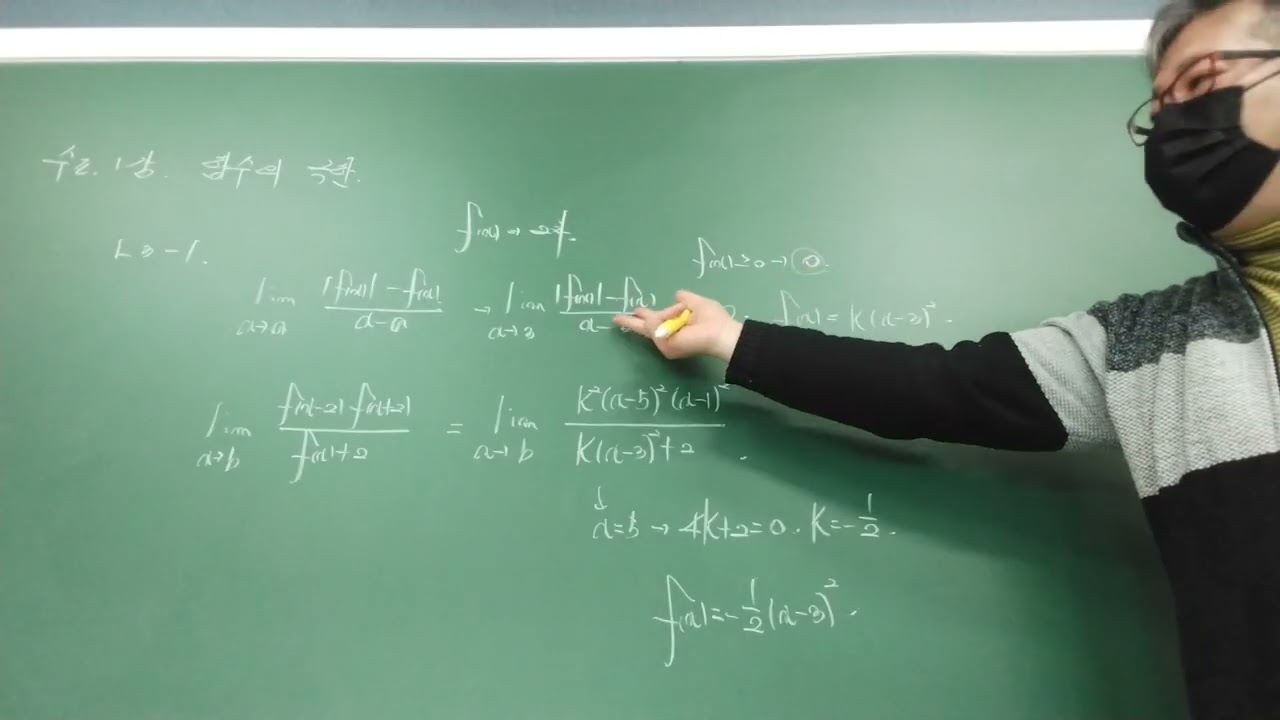 수2. 1강. 함수의 극한.
L3-1.
f(x) → 2차.
f(x)≥0 → 0.
lim x→a |f(x)|-f(x) / x-a → lim x→3 |f(x)|-f(x) / x- f(x)=K(x-3)².
lim x→b f(x-2)f(x+2) / f(x)+2 = lim x→b K²(x-5)²(x-1)² / K(x-3)²+2 .
↓
x=5 → 4K+2=0. K=-1/2.
f(x)=-1/2(x-3)².